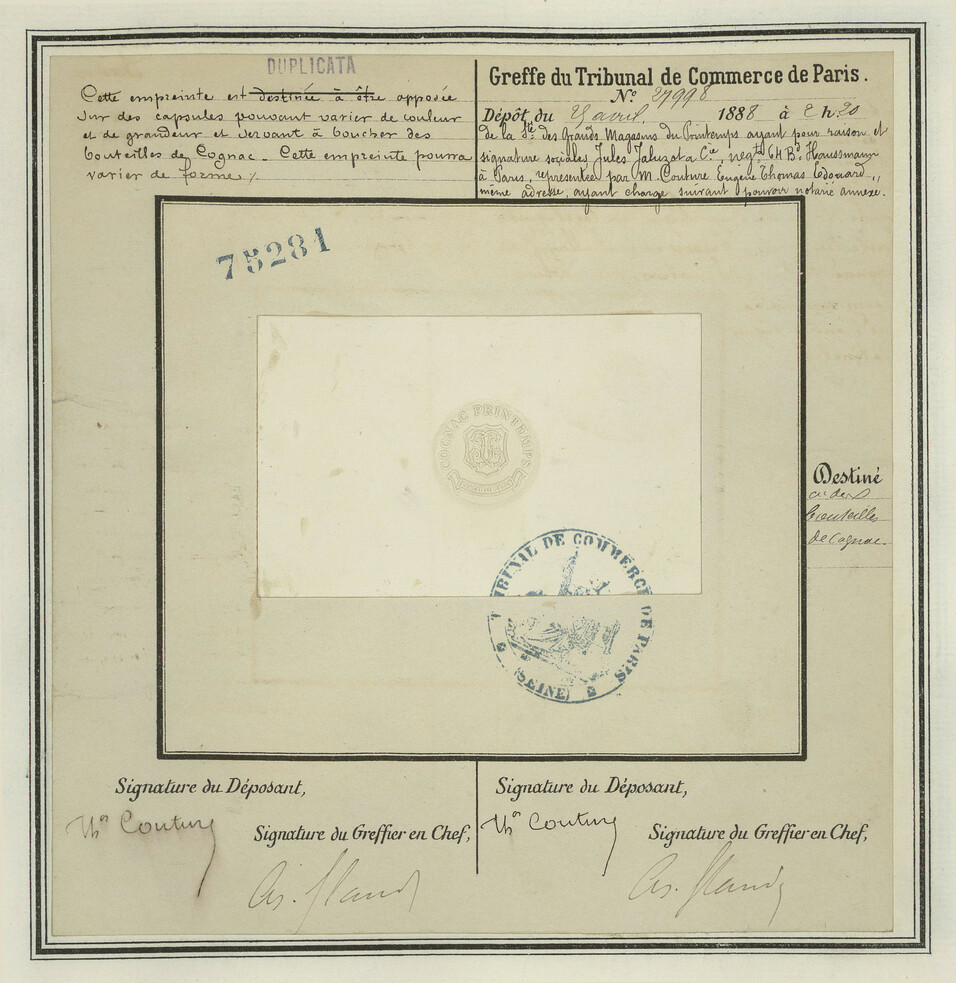 DUPLICATA
Cette empreinte est destinée à être apposée
sur des capsules pouvant varier de couleur
et de grandeur et servant à boucher des
bouteilles de Cognac. Cette empreinte pourra
varier de forme ./.
Greffe du Tribunal de Commerce de Paris.
N° 27998
Dépôt du 25 avril 1888 à 2 h. 20
de la Sté des Grands Magasins du Printemps ayant pour raison et
signature sociales Jules Jaluzot & Cie, négts 64 Bd Haussmann
à Paris, représentée par M. Couture Eugène Thomas Edouard,
même adresse, ayant charge suivant pouvoir notarié annexé.
75281
COGNAC PRINTEMPS
TRIBUNAL DE COMMERCE DE PARIS
(SEINE)
Destiné
à des
bouteilles
de Cognac.
Signature du Déposant,
Ths Couture
Signature du Greffier en Chef,
Signature du Déposant,
Ths Couture
Signature du Greffier en Chef,